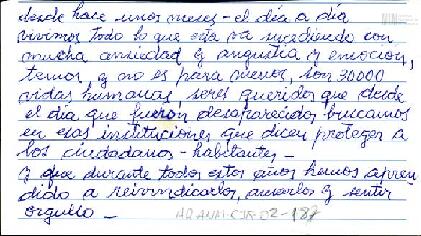 desde hace unos meses - el día a día
vivimos todo lo que esta va sucediendo con
mucha ansiedad y angustia y emocion,
temor, y no es para menos, son 30000
vidas humanas, seres queridos que desde
el día que fueron desaparecidos buscamos
en esas instituciones que dicen proteger a
los ciudadanos - habitantes -
y que durante todos estos años hemos apren
dido a reivindicarlos, amarlos y sentir
orgullo -
AR ANM-CJR-02-187